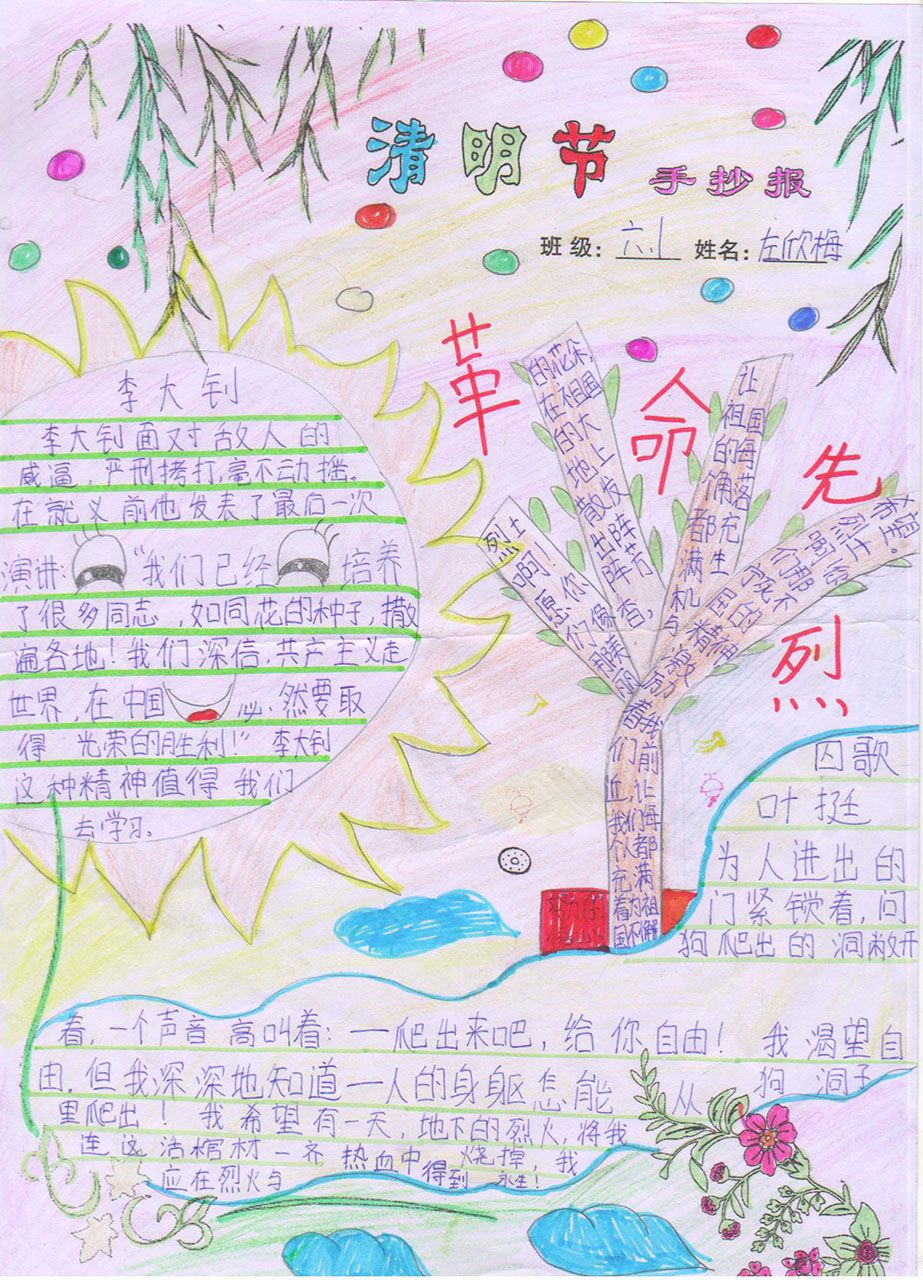 清明节 手抄报
班级：六.1 姓名：左欣梅
革命先烈
李大钊
李大钊面对敌人的
威逼，严刑拷打，毫不动摇。
在就义前他发表了最后一次
演讲："我们已经培养
了很多同志，如同花的种子，撒
遍各地！我们深信，共产主义走
世界，在中国必然要取
得光荣的胜利！"李大钊
这种精神值得我们
去学习。
烈士
啊！愿你
们像
那美丽
的花朵，
在祖国
的大
地上
散发
出阵
阵芳
香，
让
祖国
的每
个角落
都充
满生
机与
希望。
烈士
囚歌
叶挺
为人进出的
门紧锁着，问
狗爬出的洞敞开
着，一个声音高叫着：一爬出来吧，给你自由！我渴望自
由，但我深深地知道一人的身躯怎能从狗洞子
里爬出！我希望有一天，地下的烈火，将我
连这活棺材一齐烧掉，我
应在烈火与热血中得到永生！